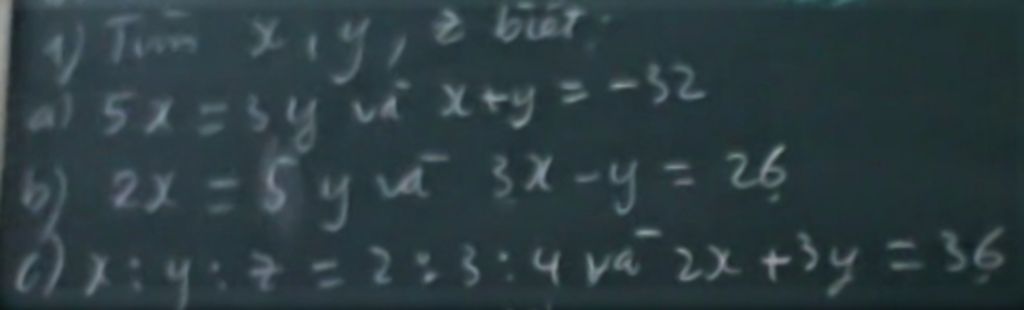 1) Tìm x, y, z biết:
a) 5x = 3y và x+y = -32
b) 2x = 5y và 3x - y = 26
c) x : y : z = 2 : 3 : 4 và 2x + 3y = 36